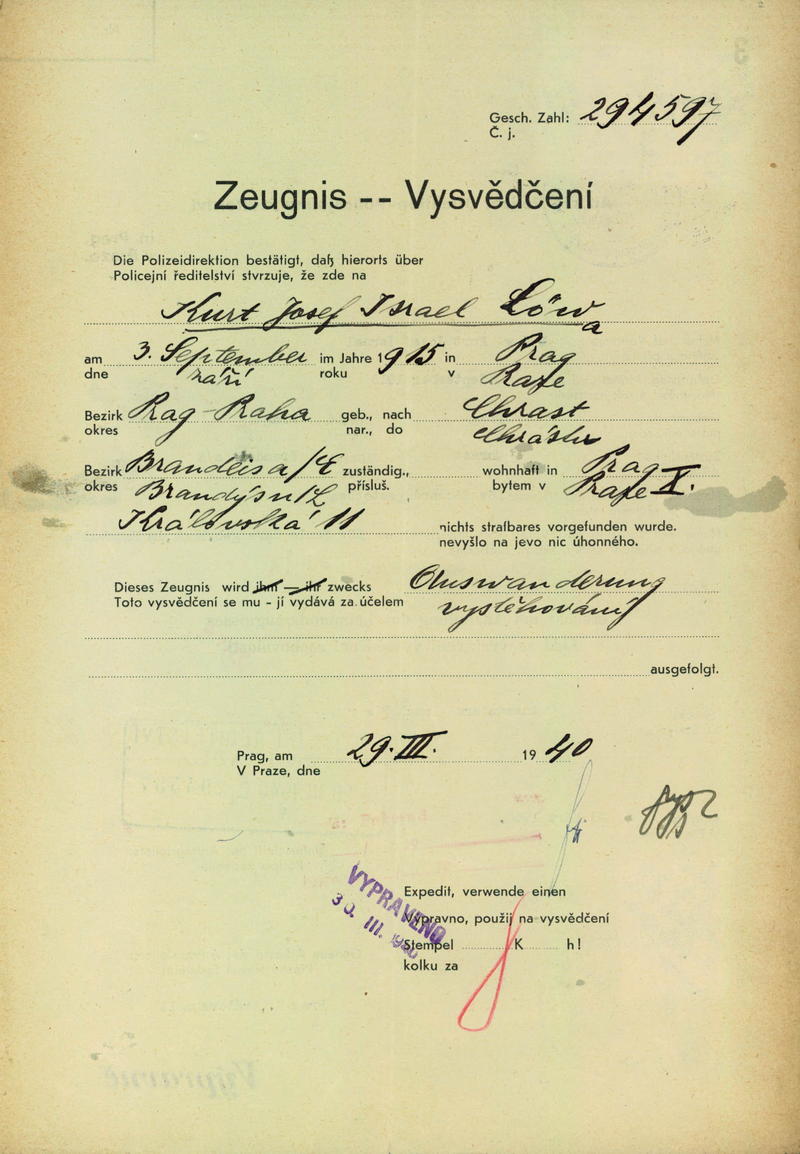 Gesch. Zahl: 294597
Č. j.
Zeugnis -- Vysvědčení
Die Polizeidirektion bestätigt, daß hierorts über
Policejní ředitelství stvrzuje, že zde na
Kurt Josef Israel Löw
a
am 3. September im Jahre 1915 in Prag
dne září roku v Praze
Bezirk Prag Praha geb., nach Chrast
okres nar., do Chrástu
Bezirk Brandeis a/E zuständig., wohnhaft in Prag
okres Brandýs n/L přísluš. bytem v Praze X.
Královská 11 nichts strafbares vorgefunden wurde.
nevyšlo na jevo nic úhonného.
Dieses Zeugnis wird ihm — ihr zwecks Auswanderung
Toto vysvědčení se mu - jí vydává za účelem vystěhování
ausgefolgt.
Prag, am 29. III. 1940
V Praze, dne
Expedit, verwende einen
VYPRAVENO
30. III. 1940
Výpravno, použij na vysvědčení
Stempel K h!
kolku za